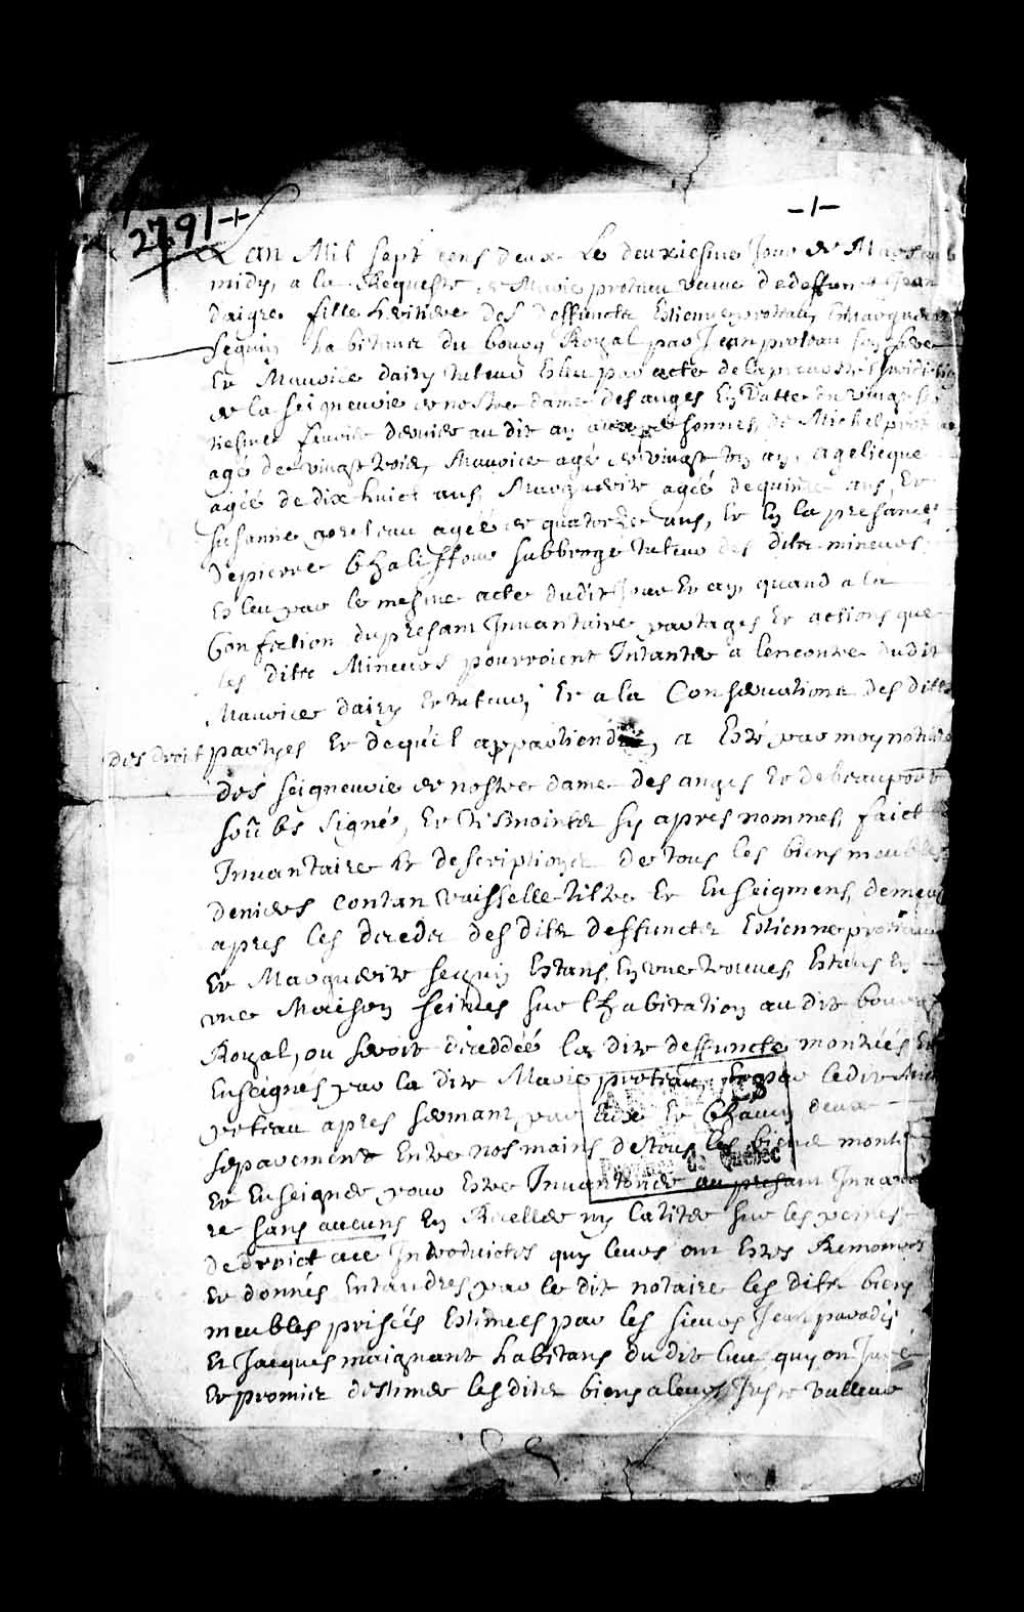 2791
-1-
Lan Mil sept cens deux Le deuxiesme Jour de Mars
midy, a la Requeste de Marie proteau veuve de deffunt Jean
daigre fille heritiere des deffuncts Estienne proteau, Et Marguerite
seguin habitans du bourg Royal par Jean proteau son frere
Et Maurice dairy tuteur Esleu par acte de la prevosté
de la seigneurie de nostre dame des anges En datte du vingt
fevrier dernier au dit an aux personnes de Michel prot
agé de vingt trois, Maurice agé de vingt Un an, agelicque
agéé de dix huict ans, Marguerite agéé de quinze ans, Et
Susanne proteau agéé de quatorze ans, Et En la presance
de pierre Chaliffour subbroge tuteur des dits mineurs
Esleu par le mesme acte dudit Jour Et an quand a la
Confection du presant Inuantaire partages Et actions que
les dits Mineurs pourroient Intanter a lencontre dudit
Maurice dairy Et tuteur, Et a la Conseruations des dittes
des droit partyes Et de qu'il appartiendra, a Esté par moy notaire
des seigneurie de nostre dame des anges Et de beauport
soubs signé, Et tesmoints sy apres nommes, faict
Inuantaire Et descriptions de tous les biens meubles
deniers contan Vaisselle tiltre Et Enseignens, demeuré
apres les deceds des dits deffuncts Estienne proteau
Et Marguerite seguin Estans En Une trouues, Estans En
une Maison scitues sur lhabitation au dit bourg
Royal, ou seroit deceddéé la dite deffuncte montréés Et
Enseignés par la dite Marie proteau, Et par le dit
proteau apres sermant par Eux Et Chacun deux
separement Entre nos mains de tous les biens montré
Et Enseigner pour Estre Inuantorier au presant Inuantai
re sans aucuns En Receller ny latiter sur les peines
De droict ace Introduictes quy leurs ont Estés Remontrés
Et donnés Entandres par le dit notaire les dits biens
meubles prisées Estimees par les sieurs Jean paradis
Et Jacques maignant habitans du dit lieu quy on Juré
Et promis destimer les dits biens a leurs Juste Valleur
Québec